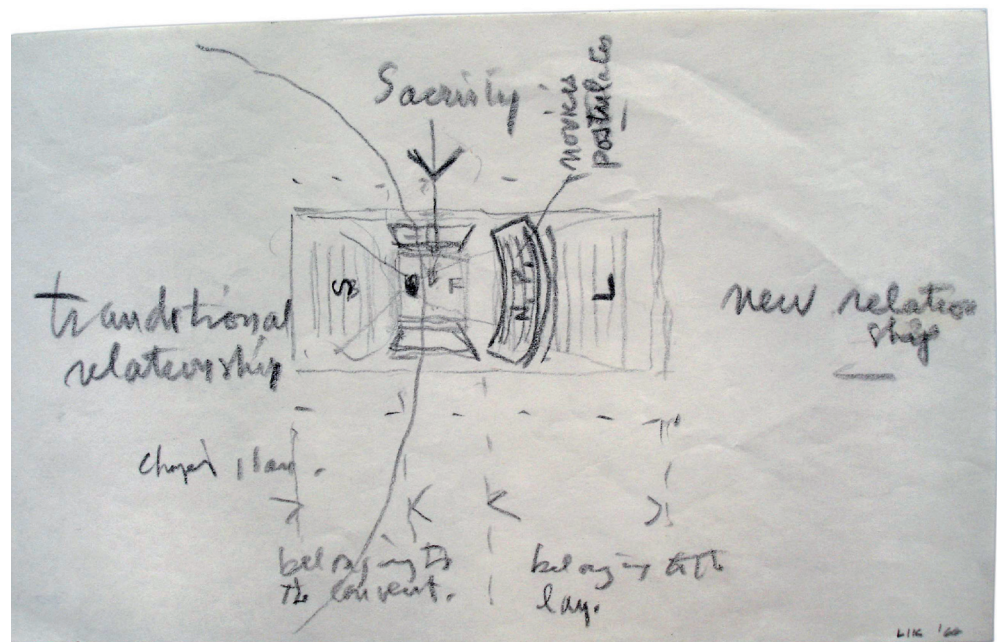 Sacristy
novices
postulates
S
F
N.P.
L
tranditional
relationship
new relation
ship
chapel plan.
belonging to
the convent.
belonging to the
lay.
LIK '66